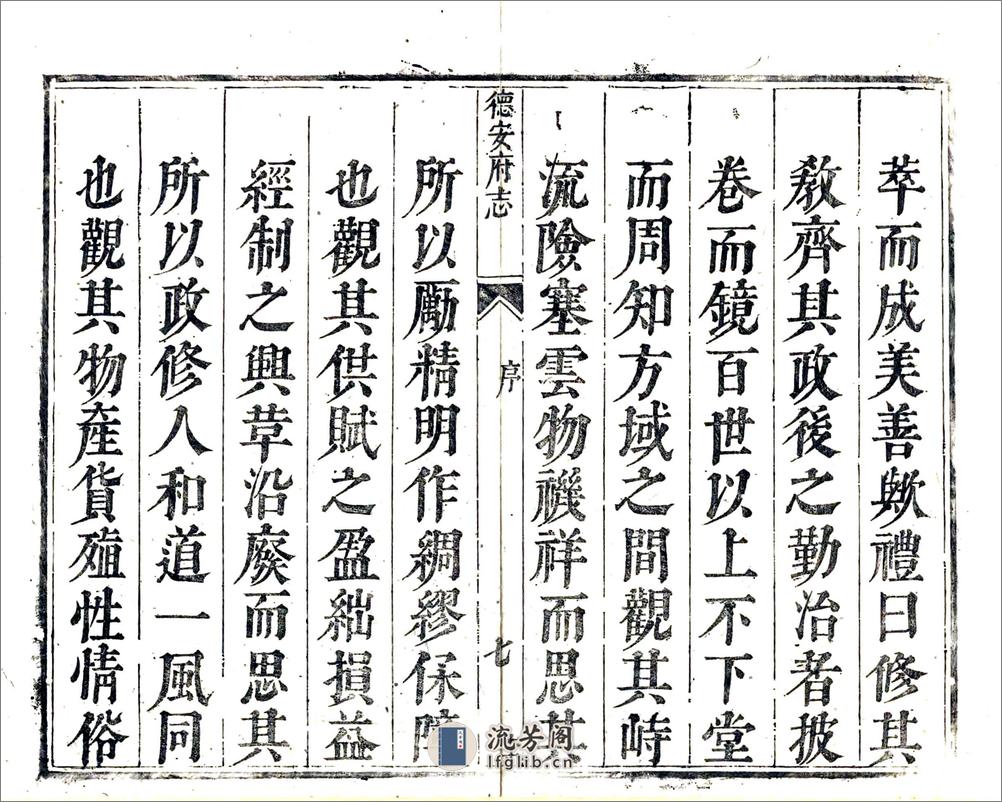 萃而成美善歟禮曰修其
敎齊其政後之勤治者披
卷而鏡百世以上不下堂
而周知方域之間觀其峙
流險塞雲物禨祥而思其
德安府志
序
七
所以勵精明作綢繆保障
也觀其供賦之盈絀損益
經制之興革沿廢而思其
所以政修人和道一風同
也觀其物產貨殖性情俗
流芳阁
lfglib.cn